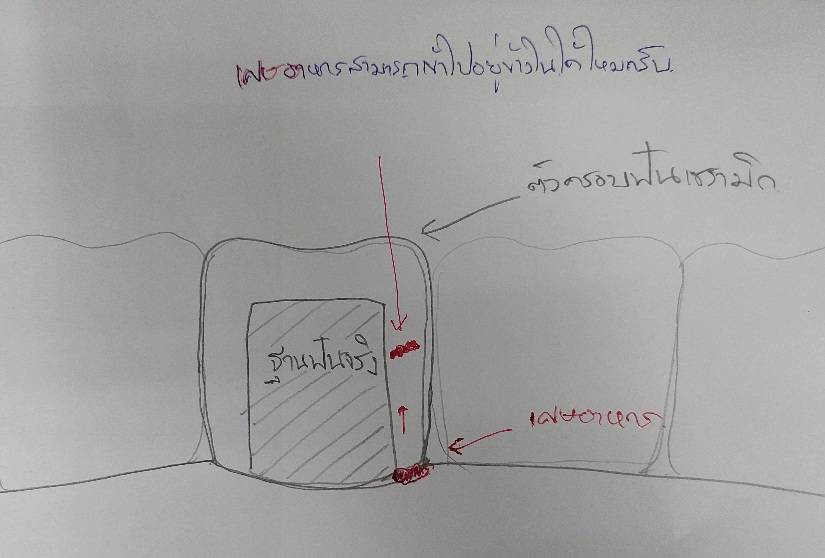 เศษอาหารสามารถเข้าไปอยู่ข้างในได้ไหมครับ
ตัวครอบฟันเซรามิก
ฐานฟันจริง
เศษอาหาร